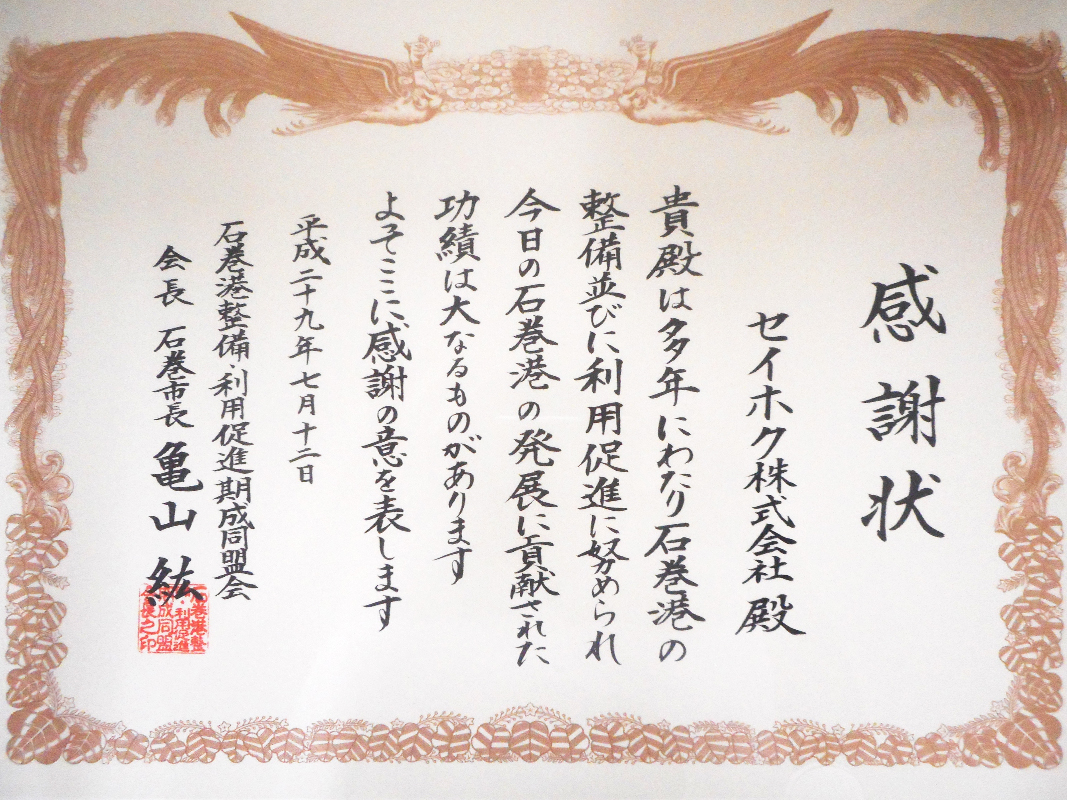 感謝状
セイホク株式会社 殿
貴殿は多年にわたり石巻港の
整備並びに利用促進に努められ
今日の石巻港の発展に貢献された
功績は大なるものがあります
よってここに感謝の意を表します
平成二十九年七月十二日
石巻港整備・利用促進期成同盟会
会長 石巻市長 亀山 紘
石巻港整
備・利用促進
期成同盟
会長之印